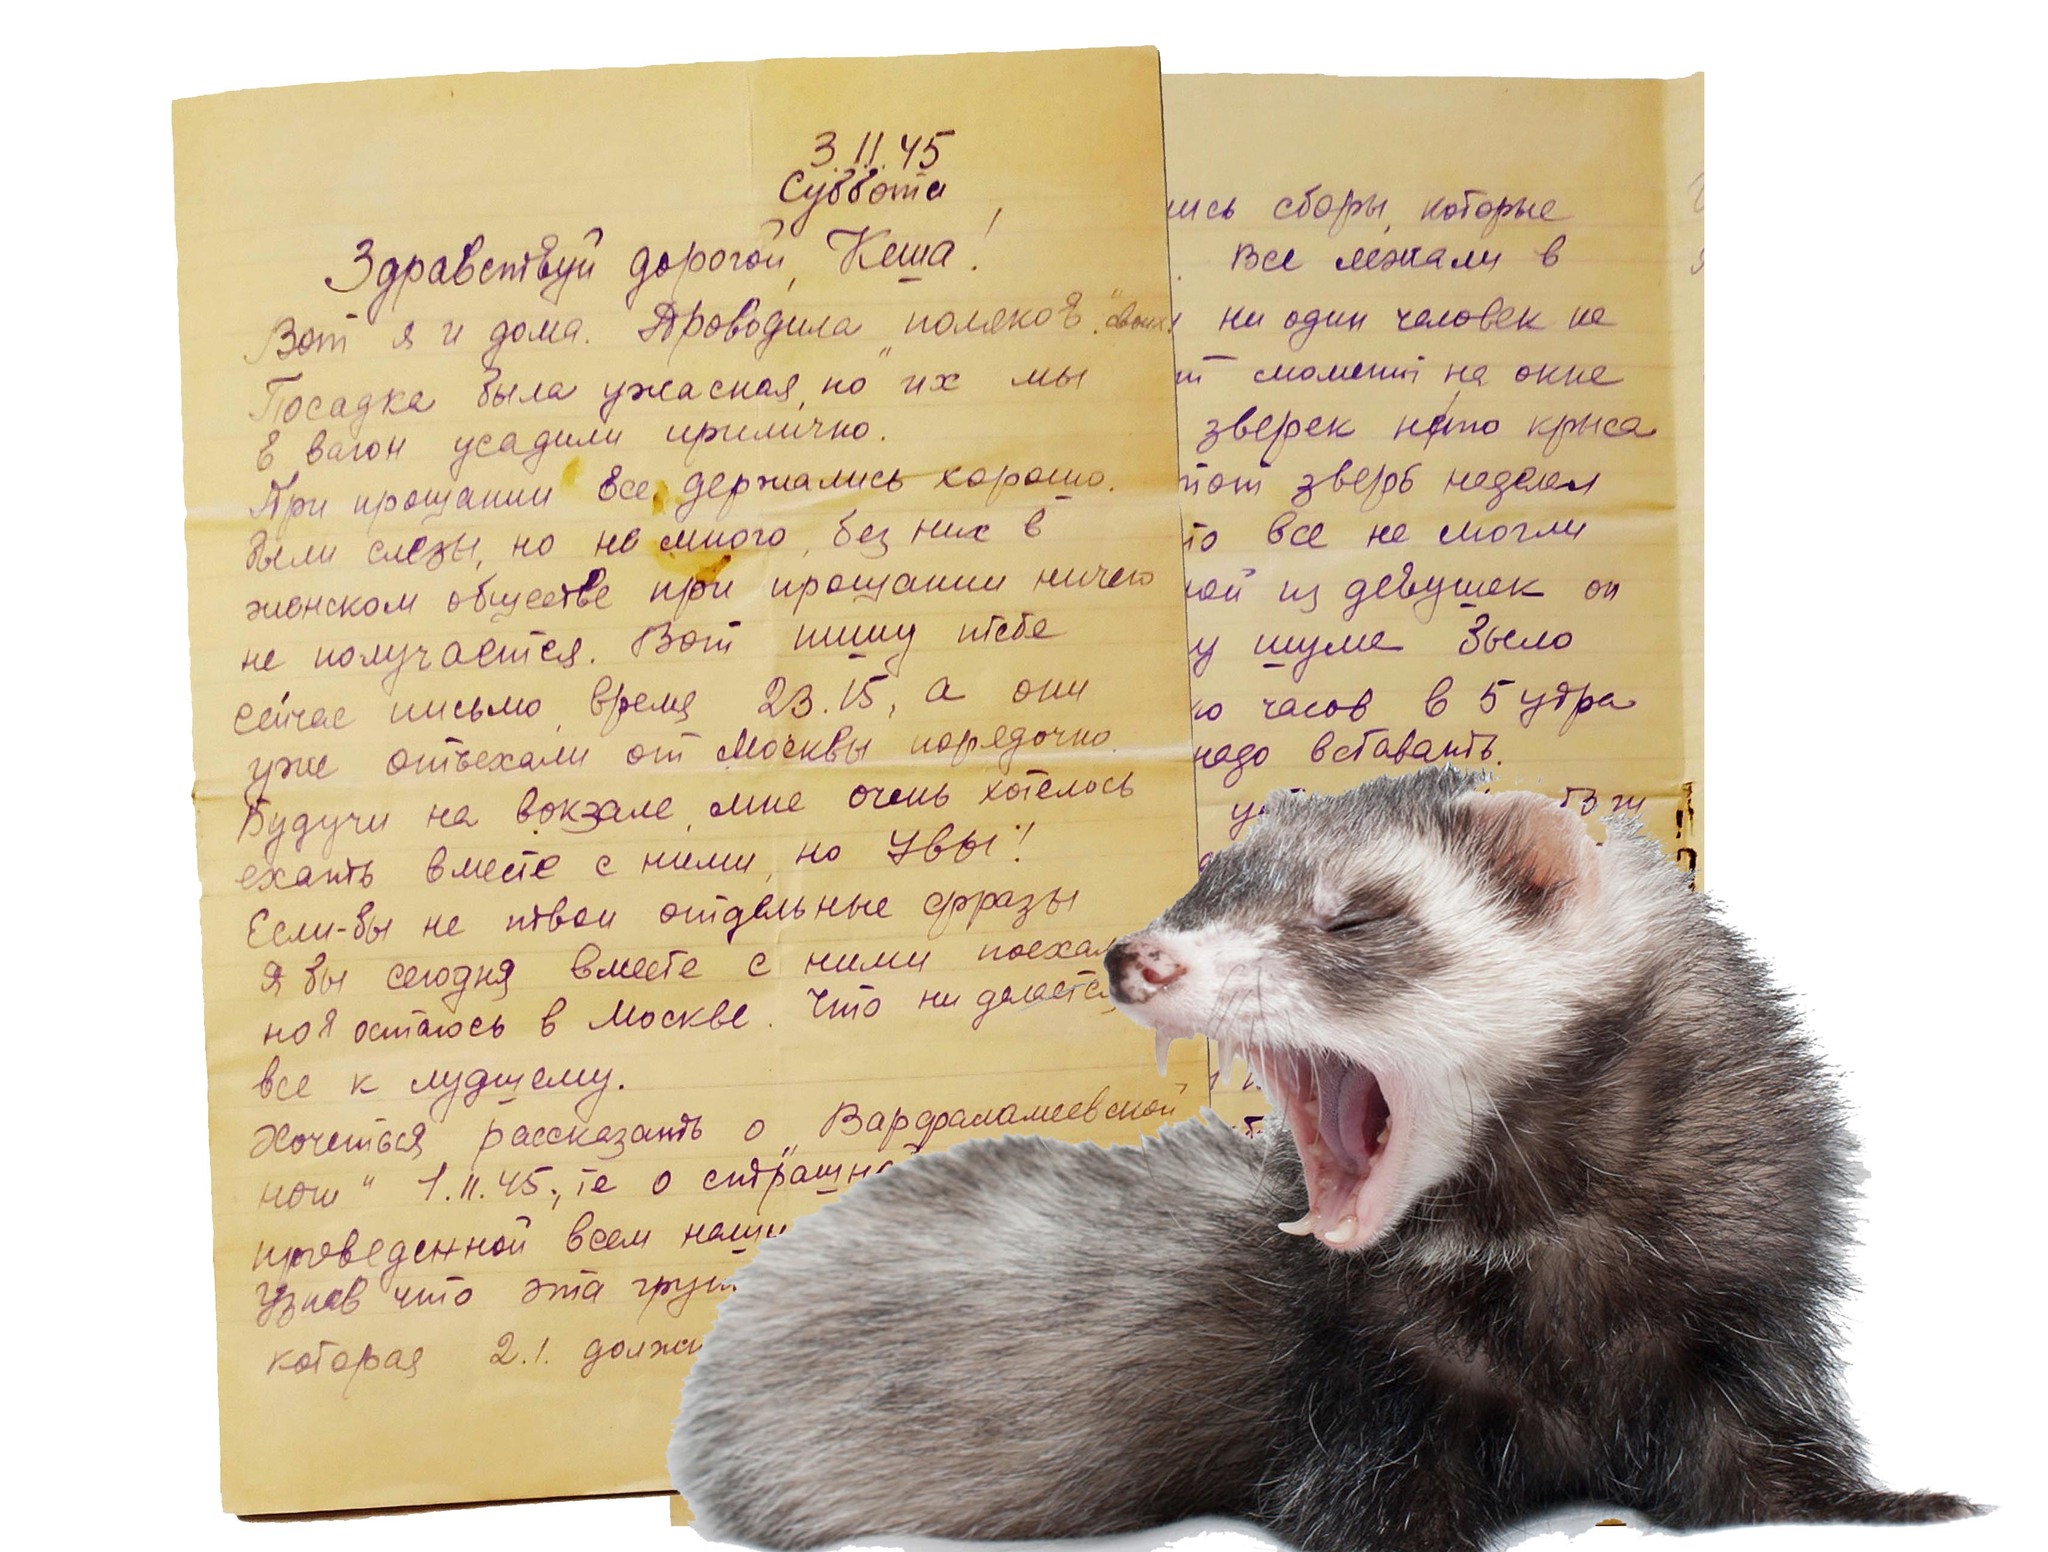 3.11.45
Суббота
Здравствуй дорогой, Кеша!
Вот я и дома. Проводила "поляков".
Посадка была ужасная, но их мы
в вагон усадили прилично.
При прощании все держались хорошо.
были слезы, но не много, без них в
женском обществе при прощании ничего
не получается. Вот пишу тебе
сейчас письмо, время 23.15, а они
уже отъехали от Москвы порядочно.
Будучи на вокзале, мне очень хотелось
ехать вместе с ними, но увы!
Если-бы не твои отдельные фразы
я бы сегодня вместе с ними поехал
но я остаюсь в Москве. Что ни делается
все к лудшему.
Хочеться рассказать о "Варфаламеевской
ноч" 1.11.45, те о страшной
проведенной всем наши
Узнав что эта груп
которая 2.1. должн
ись сборы, которые
. Все лежали в
ни один человек не
т момент на окне
зверек нето крыса
тот зверь наделал
то все не могли
ной из девушек он
у шуме было
ко часов в 5 утра
надо вставать.